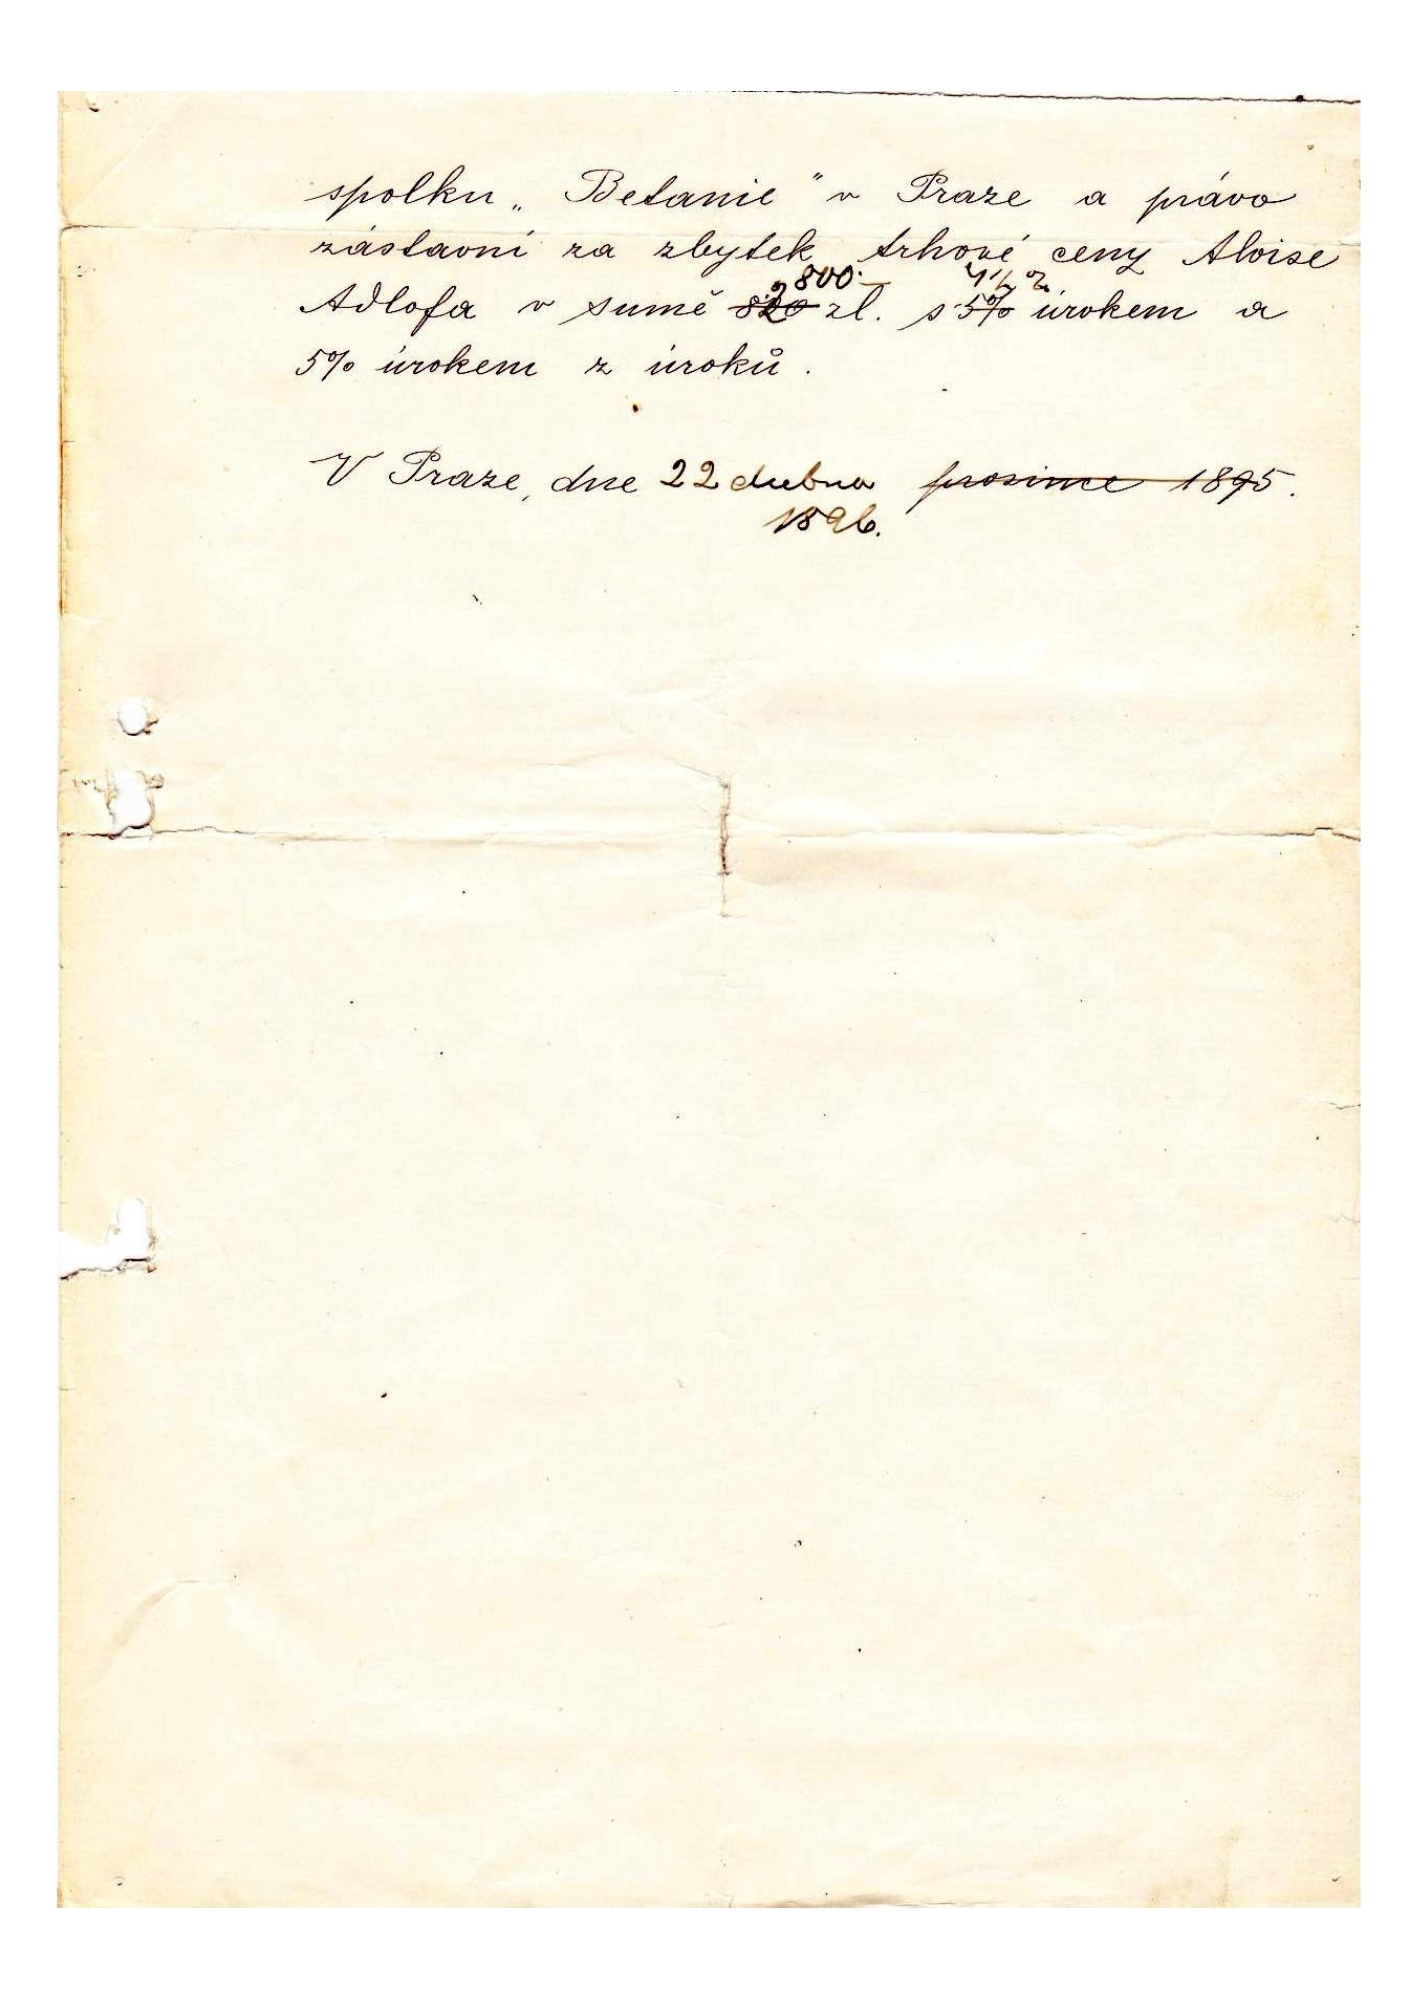 spolku „Betanie“ v Praze a právo
zástavní za zbytek trhové ceny Aloise
800.—     4½%
Adlofa v sumě 820 zl. s 5% úrokem a
5% úrokem z úroků.
V Praze, dne 22 dubna prosince 1895.
1896.